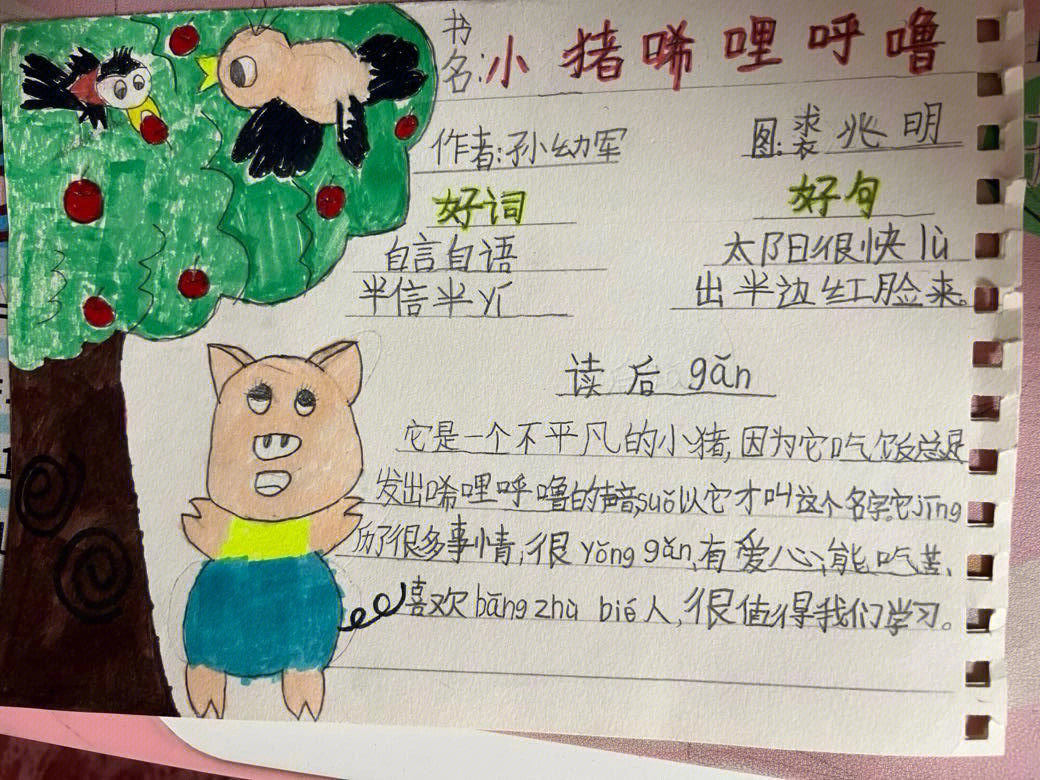 书名:小猪唏哩呼噜
作者:孙幼军 图:裘兆明
好词
自言自语
半信半yí
好句
太阳很快lù
出半边红脸来。
读后gǎn
它是一个不平凡的小猪,因为它吃饭总是
发出唏哩呼噜的声音,suǒ以它才叫这个名字。它jīng
历了很多事情,很yǒng gǎn,有爱心,能吃苦、
喜欢bāng zhù bié人,很值得我们学习。